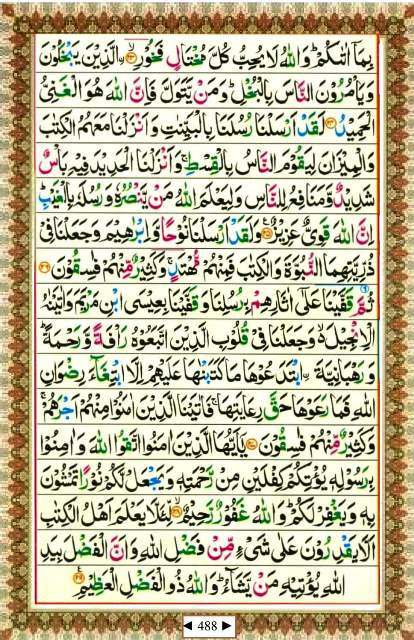 بِمَاۤ اٰتٰىكُمْؕ وَاللّٰهُ لَا يُحِبُّ كُلَّ مُخْتَالٍ فَخُوْرِۙ‏﴿۲۳﴾ اۨلَّذِيْنَ يَبْخَلُوْنَ
وَيَاْمُرُوْنَ النَّاسَ بِالْبُخْلِؕ وَمَنْ يَّتَوَلَّ فَاِنَّ اللّٰهَ هُوَ الْغَنِىُّ
الْحَمِيْدُ‏﴿۲۴﴾ لَقَدْ اَرْسَلْنَا رُسُلَنَا بِالْبَيِّنٰتِ وَاَنْزَلْنَا مَعَهُمُ الْكِتٰبَ
وَالْمِيْزَانَ لِيَقُوْمَ النَّاسُ بِالْقِسْطِۚ وَاَنْزَلْنَا الْحَدِيْدَ فِيْهِ بَاْسٌ
شَدِيْدٌ وَّمَنَافِعُ لِلنَّاسِ وَلِيَعْلَمَ اللّٰهُ مَنْ يَّنْصُرُهٗ وَرُسُلَهٗ بِالْغَيْبِؕ
اِنَّ اللّٰهَ قَوِىٌّ عَزِيْزٌ‏﴿۲۵﴾ وَلَقَدْ اَرْسَلْنَا نُوْحًا وَّاِبْرٰهِيْمَ وَجَعَلْنَا فِىْ
ذُرِّيَّتِهِمَا النُّبُوَّةَ وَالْكِتٰبَ فَمِنْهُمْ مُّهْتَدٍۚ وَكَثِيْرٌ مِّنْهُمْ فٰسِقُوْنَ‏﴿۲۶﴾
ثُمَّ قَفَّيْنَا عَلٰٓى اٰثَارِهِمْ بِرُسُلِنَا وَقَفَّيْنَا بِعِيْسَى ابْنِ مَرْيَمَ وَاٰتَيْنٰهُ
الْاِنْجِيْلَ ۙ وَجَعَلْنَا فِىْ قُلُوْبِ الَّذِيْنَ اتَّبَعُوْهُ رَاْفَةً وَّرَحْمَةًؕ
وَرَهْبَانِيَّةَ اۨبْتَدَعُوْهَا مَا كَتَبْنٰهَا عَلَيْهِمْ اِلَّا ابْتِغَآءَ رِضْوَانِ
اللّٰهِ فَمَا رَعَوْهَا حَقَّ رِعَايَتِهَاۚ فَاٰتَيْنَا الَّذِيْنَ اٰمَنُوْا مِنْهُمْ اَجْرَهُمْۚ
وَكَثِيْرٌ مِّنْهُمْ فٰسِقُوْنَ‏﴿۲۷﴾ يٰۤاَيُّهَا الَّذِيْنَ اٰمَنُوا اتَّقُوا اللّٰهَ وَاٰمِنُوْا
بِرَسُوْلِهٖ يُؤْتِكُمْ كِفْلَيْنِ مِنْ رَّحْمَتِهٖ وَيَجْعَلْ لَّكُمْ نُوْرًا تَمْشُوْنَ
بِهٖ وَيَغْفِرْ لَكُمْؕ وَاللّٰهُ غَفُوْرٌ رَّحِيْمٌۙ‏﴿۲۸﴾ لِّئَلَّا يَعْلَمَ اَهْلُ الْكِتٰبِ
اَلَّا يَقْدِرُوْنَ عَلٰى شَىْءٍ مِّنْ فَضْلِ اللّٰهِ وَاَنَّ الْفَضْلَ بِيَدِ
اللّٰهِ يُؤْتِيْهِ مَنْ يَّشَآءُؕ وَاللّٰهُ ذُو الْفَضْلِ الْعَظِيْمِ‏﴿۲۹﴾
◄ 488 ►